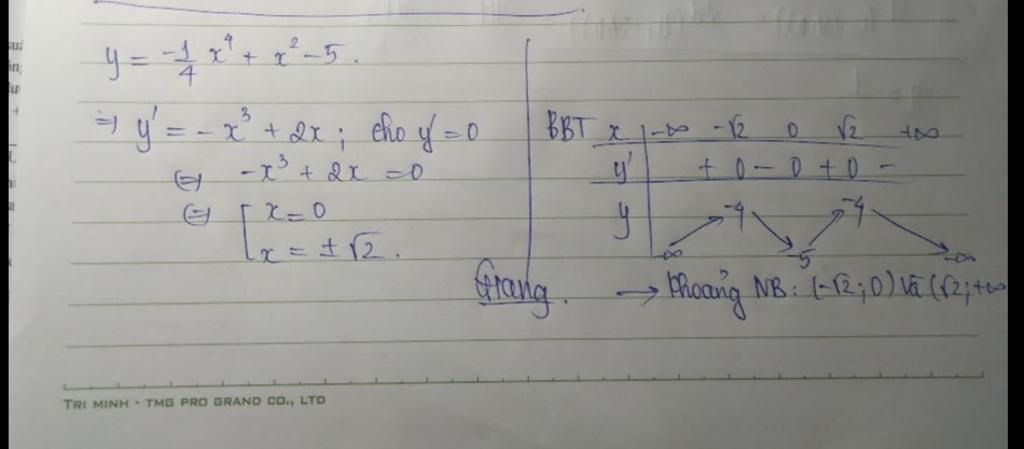 y = -1/4 x⁴ + x² - 5.
⇒ y' = - x³ + 2x ; cho y' = 0
⇔ -x³ + 2x = 0
⇔ [ x = 0
x = ± √2.
BBT x | -∞ -√2 0 √2 +∞
y' | + 0 - 0 + 0 -
y | -∞ ↗ -4 ↘ -5 ↗ -4 ↘ -∞
Giang.
→ Khoảng NB : (-√2 ; 0) và (√2 ; +∞
TRI MINH - TMG PRO GRAND CO., LTD